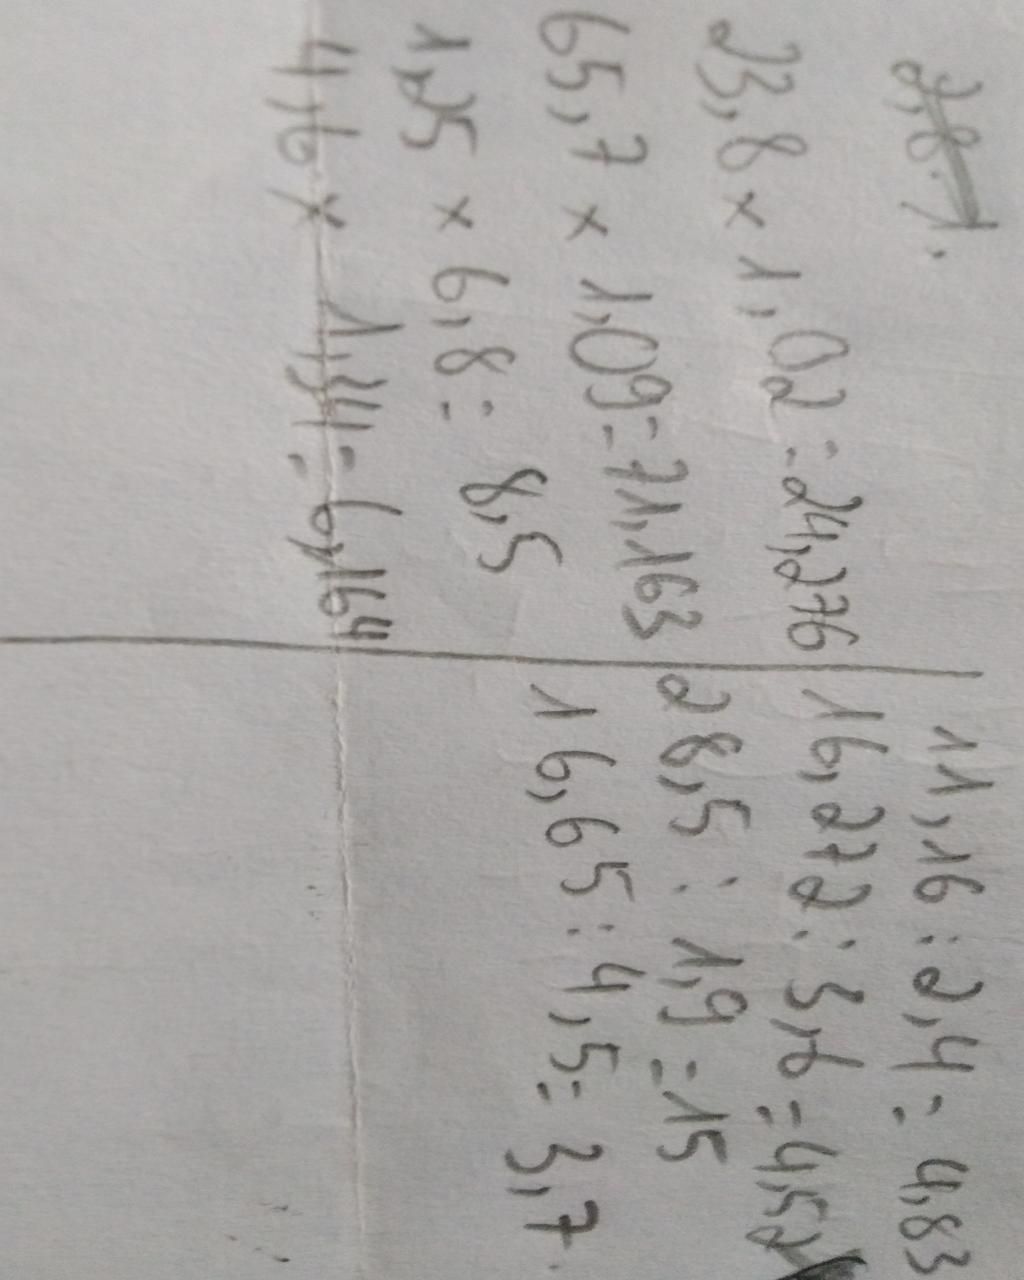 23,8 x 1,02 = 24,276
65,7 x 1,09 = 71,163
1,25 x 6,8 = 8,5
4,6 x 1,34 = 6,164
11,16 : 2,4 = 4,83
16,272 : 3,6 = 4,52
28,5 : 1,9 = 15
16,65 : 4,5 = 3,7